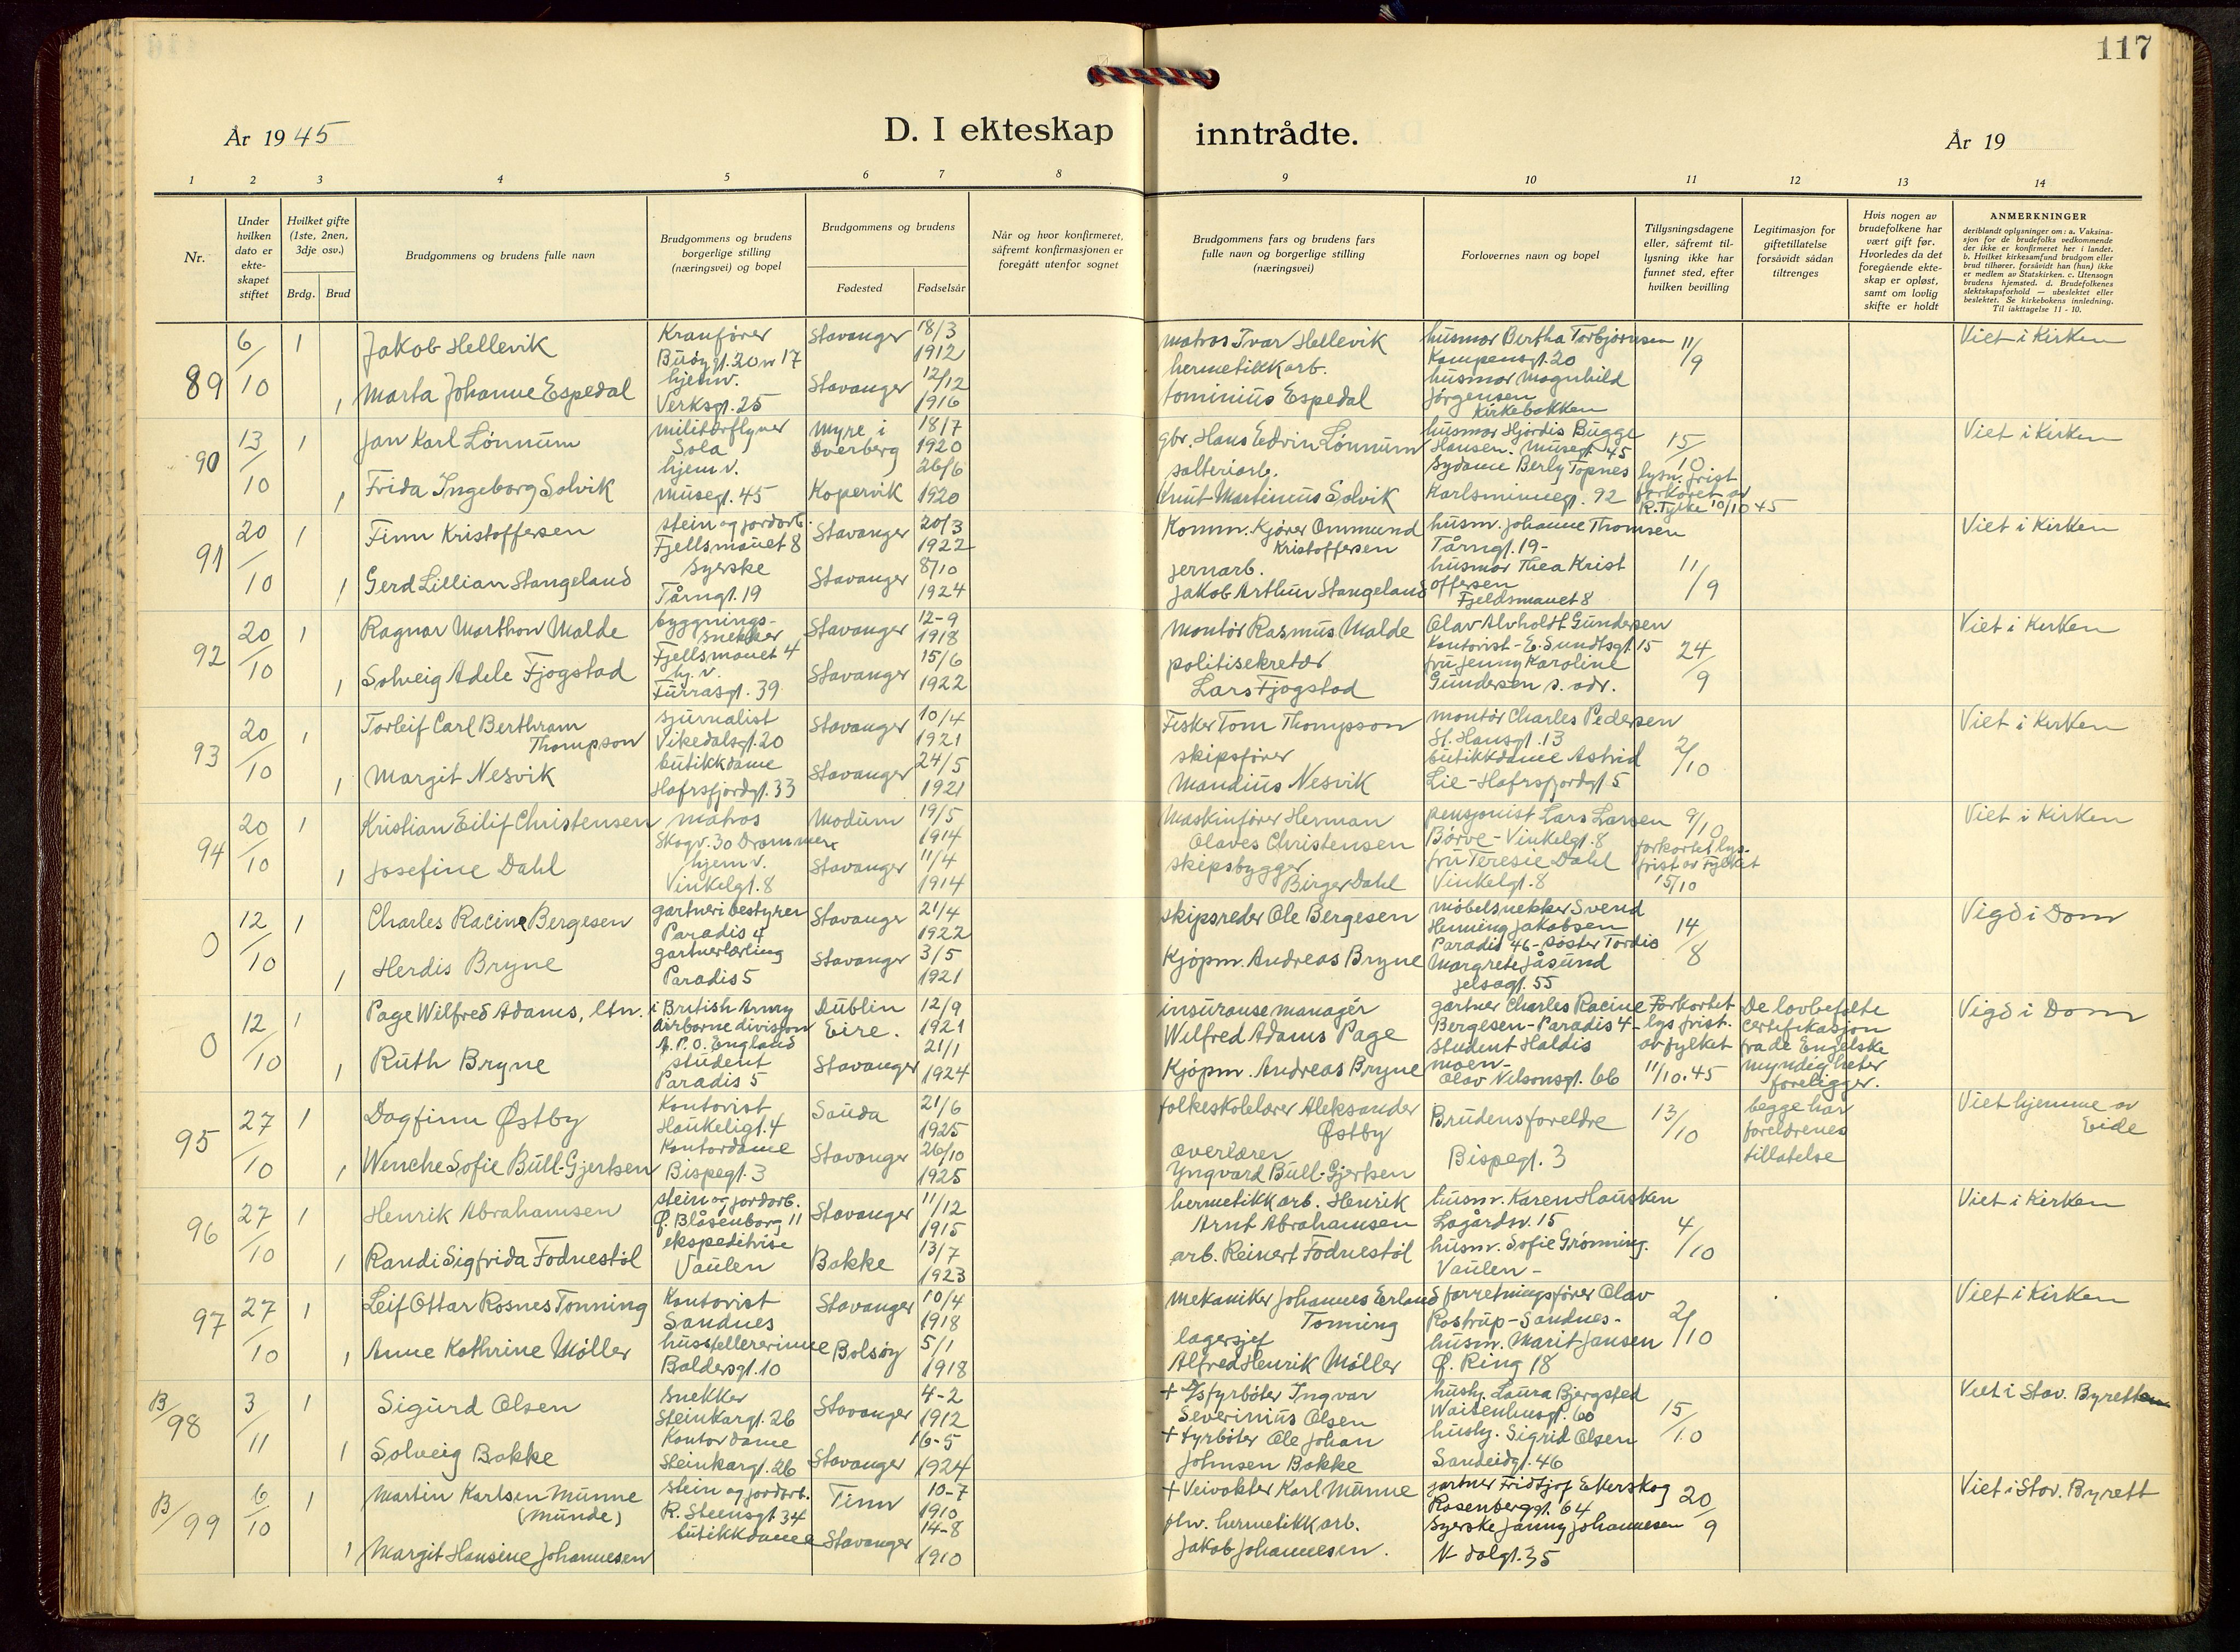 117
År 1945
D. I ekteskap inntrådte.
År 19
1 2 3 4 5 6 7 8 9 10 11 12 13 14
Nr.
Under hvilken dato er ekteskapet stiftet
Hvilket gifte (1ste, 2nen, 3dje osv.)
Brdg. Brud
Brudgommens og brudens fulle navn
Brudgommens og brudens borgerlige stilling (næringsvei) og bopel
Brudgommens og brudens
Fødested
Fødselsår
Når og hvor konfirmeret, såfremt konfirmasjonen er foregått utenfor sognet
Brudgommens fars og brudens fars fulle navn og borgerlige stilling (næringsvei)
Forlovernes navn og bopel
Tillysningsdagene eller, såfremt tillysning ikke har funnet sted, efter hvilken bevilling
Legitimasjon for giftetillatelse forsåvidt sådan tiltrenges
Hvis nogen av brudefolkene har vært gift før. Hvorledes da det foregående ekteskap er opløst, samt om lovlig skifte er holdt
ANMERKNINGER
deriblandt oplysninger om: a. Vaksinasjon for de brudefolks vedkommende der ikke er konfirmeret her i landet. b. Hvilket kirkesamfund brudgom eller brud tilhører, forsåvidt han (hun) ikke er medlem av Statskirken. c. Utensogn brudens hjemsted. d. Brudefolkenes slektskapsforhold — ubeslektet eller beslektet. Se kirkebokens innledning. Til iakttagelse 11 - 10.
89 6/10 1 Jakob Hellevik Kranfører Buøygt. 20 nr 17 Stavanger 18/3 1912 matros Ivar Hellevik husmor Bertha Torbjørnsen Kampensgt. 20 11/9 Viet i Kirken
1 Marta Johanne Espedal hjemv. Verksgt. 25 Stavanger 12/12 1916 hermetikkarb. Tominius Espedal husmor Magnhild Jørgensen Kirkebakken
90 13/10 1 Jan Karl Lønnum militærflyver Sola Myre i Dverberg 18/7 1920 gbr. Hans Edvin Lønnum husmor Hjørdis Bugge Hansen. Musegt. 45 15/10 Viet i Kirken
1 Frida Ingeborg Solvik hjem v. Musegt. 45 Kopervik 26/6 1920 salteriarb. Knut Martinius Solvik Sydame Berly Topnes Karlsminnegt. 92 lysn. frist forkortet av R. Fylke 10/10 45
91 20/10 1 Finn Kristoffersen stein og jordarb. Fjellsmauet 8 Stavanger 20/3 1922 Komm. Kjører Ommund Kristoffersen husm. Johanne Thomsen Tårngt. 19- 11/9 Viet i Kirken
1 Gerd Lillian Stangeland Syerske Tårngt. 19 Stavanger 8/10 1924 jernarb. Jakob Arthur Stangeland husmor Thea Kristoffersen Fjeldsmauet 8
92 20/10 1 Ragnar Marthon Malde bygnings-snekker Fjellsmauet 4 Stavanger 12-9 1918 Montør Rasmus Malde Olav Alvholdt Gundersen Kontorist - E. Sundtsgt. 15 24/9 Viet i Kirken
1 Solveig Adele Fjogstad hj. v. Furrasgt. 39 Stavanger 15/6 1922 politisekretær Lars Fjogstad fru Jenny Karoline Gundersen s. adr.
93 20/10 1 Torleif Carl Berthram Thompson sjurnalist Vikedalsgt. 20 Stavanger 10/4 1921 Fisker Tom Thompson montør Charles Pedersen St. Hansgt. 13 2/10 Viet i Kirken
1 Margit Nesvik butikkdame Hafrsfjordgt. 33 Stavanger 24/5 1921 skipsfører Mandius Nesvik butikkdame Astrid Lie - Hafrsfjordgt 5
94 20/10 1 Kristian Eilif Christensen matros Skogv. 30 Drammen Modum 19/5 1914 Maskinfører Herman Olaves Christensen pensjonist Lars Larsen Børve - Vinkelgt. 8 9/10 Viet i Kirken
1 Josefine Dahl hjem v. Vinkelgt. 8 Stavanger 11/4 1914 skipsbygger Birger Dahl fru Teresie Dahl Vinkelgt. 8 forkortet lys. frist av Fylket 15/10
0 12/10 1 Charles Racine Bergesen gartneribestyrer Paradis 4 Stavanger 21/4 1922 skipsreder Ole Bergesen møbelsnekker Svend Henning Jakobsen Paradis 46 - 14/8 Vigd i Dom
1 Herdis Bryne gartnerlærling Paradis 5 Stavanger 3/5 1921 Kjøpm. Andreas Bryne søster Tordis Margrete Jåsund Jelsagt. 55
0 12/10 1 Page Wilfred Adams, ltn. i British Army Airborne division A.P.O. England Dublin Eire. 12/9 1921 insurance manager Wilfred Adams Page gartner Charles Racine Bergesen - Paradis 4 - Forkortet lys frist. av fylket 11/10.45 De lovbefalte certifikasjon fra de Engelske myndigheter foreligger. Vigd i Dom
1 Ruth Bryne student Paradis 5 Stavanger 21/1 1924 Kjøpm. Andreas Bryne Student Haldis Moen - Olav Nilsonsgt. 66
95 27/10 1 Dagfinn Østby Kontorist Haukeligt. 4 Sauda 21/6 1925 folkeskolelærer Aleksander Østby Brudens foreldre 13/10 begge har foreldrenes tillatelse Viet hjemme av Eide
1 Wenche Sofie Bull-Gjertsen Kontordame Bispegt. 3 Stavanger 26/10 1925 overlærer Yngvard Bull-Gjertsen Bispegt. 3
96 27/10 1 Henrik Abrahamsen stein og jordarb. Ø. Blåsenborg 11 Stavanger 11/12 1915 hermetikkarb. Henrik Arnt Abrahamsen husm. Karen Hausken Lagårdsv. 15 4/10 Viet i Kirken
1 Randi Sigfrida Fodnestøl ekspeditrise Vaulen Bakke 13/7 1923 arb. Reinert Fodnestøl husm. Sofie Grønning. Vaulen -
97 27/10 1 Leif Ottar Rosnes Tonning Kontorist Sandnes Stavanger 10/4 1918 Mekaniker Johannes Erland Tonning forretningsfører Olav Rostrup - Sandnes - 2/10 Viet i Kirken
1 Anne Kathrine Møller husstellererinne Baldersgt. 10 Bolsøy 5/1 1918 lagersjef Alfred Henrik Møller husm. Marit Jansen Ø. Ring 18
B/98 3/11 1 Sigurd Olsen Snekker Steinkargt. 26 Stavanger 4-2 1912 + Fyrbøter Ingvar Severinius Olsen husby. Laura Bjergsted Waisenhusgt. 60 15/10 Viet i Stav. Byrett
1 Solveig Bakke Kontordame Steinkargt. 26 Stavanger 16-5 1924 + fyrbøter Ole Johan Johnsen Bakke husby. Sigrid Olsen Sandeidgt. 46
B/99 6/10 1 Martin Karlsen Munne (Munde) Stein og jordarb. R. Steensgt 34 Tinn 10-7 1910 + Veivokter Karl Munne gartner Fridtjof Ekerskog Rosenberggt. 64 20/9 Viet i Stav. Byrett
1 Margit Hansine Johannesen butikkdame Stavanger 14-8 1910 fhv. hermetikkarb. Jakob Johannesen. Syerske Janny Johannesen N- dalgt. 35